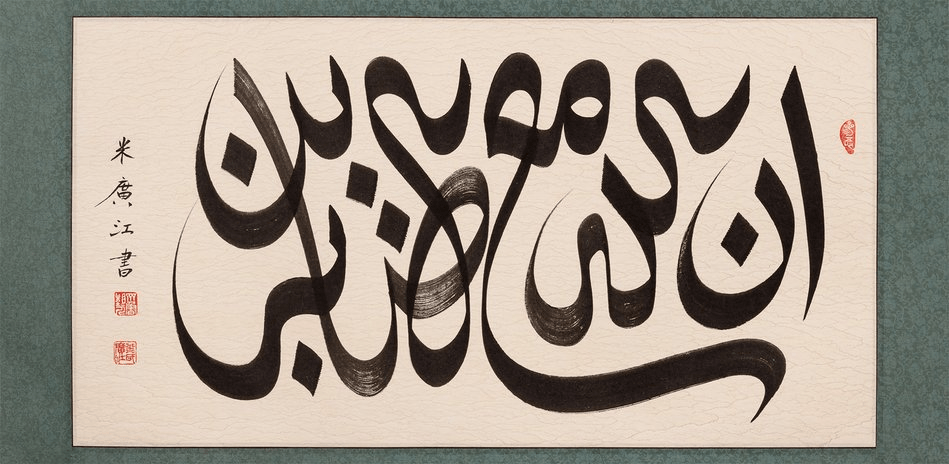 ان الله مع الصابرين
米廣江書